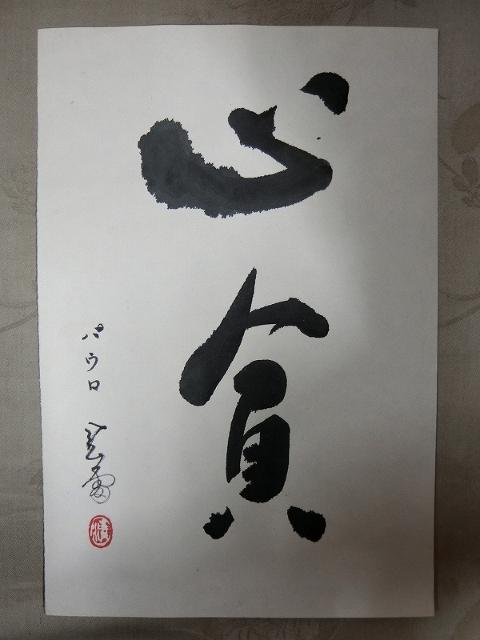 心貧
パウロ